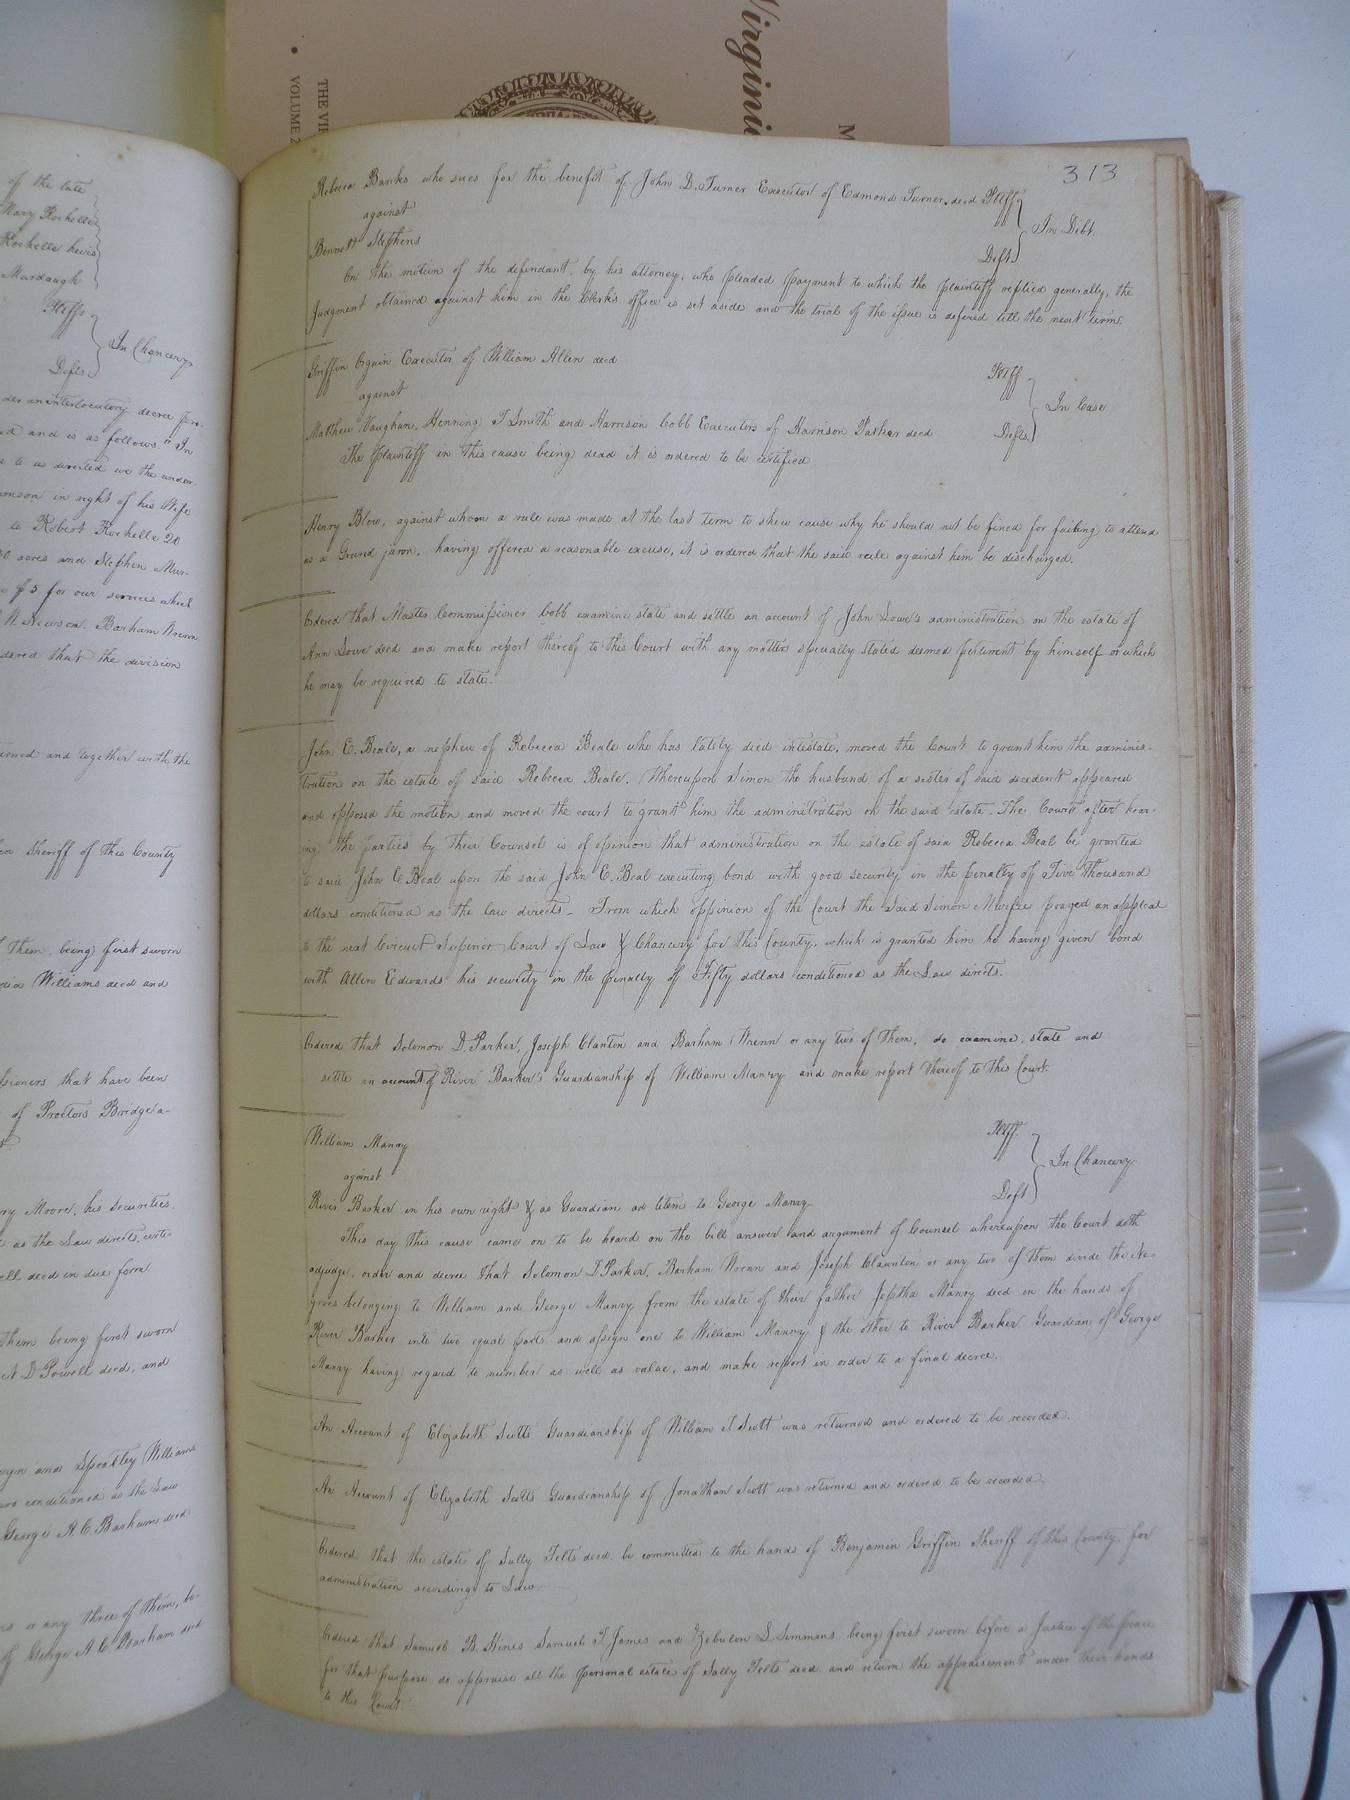 Virgini
M
THE VI
VOLUME 2
of the late
Mary Rochelle
Rochelle heirs
Murdaugh
Pltffs
In Chancery
Defts
der an interlocutory decree
and is as follows. "In
to us directed we the under
in right of his Wife
to Robert Rochelle 20
acres and Stephen Mur-
$5 for our services which
Newsom. Barham Wrenn
dered that the division
and together with the
Sheriff of this County
them being first sworn
Williams decd and
ssioners that have been
of Proctors Bridge a-
ry Moore, his securities.
as the Law directs, certi-
ell decd in due form
Them being first sworn
A D Powell decd, and
and Spratley Williams
conditioned as the Law
George A. C. Barham decd
or any three of them, be-
of George A. C. Barham decd
313
Rebecca Banks who sues for the benefit of John D. Turner Executor of Edmond Turner, decd Pltff
against
In Debt.
Bennett Stephens
Deft.
On the motion of the defendant, by his attorney, who pleaded payment to which the plaintiff replied generally, the
Judgment obtained against him in the Clerk's office is set aside and the trial of the issue is defered till the next term.
Griffin Orgain Executor of William Allen decd
Pltff
against
In Case
Matthew Vaughan, Henning T Smith and Harrison Cobb Executors of Harrison Parker decd
Defts.
The plaintiff in this cause being dead it is ordered to be certified
Henry Blow, against whom a rule was made at the last term to shew cause why he should not be fined for failing to attend
as a Grand juror, having offered a reasonable excuse, it is ordered that the said rule against him be discharged.
Ordered that Master Commissioner Cobb examine state and settle an account of John Lowe's administration on the estate of
Ann Lowe decd and make report thereof to this Court with any matters specially stated deemed pertinent by himself or which
he may be required to state.
John E. Beale, a nephew of Rebecca Beale who has lately died intestate, moved the Court to grant him the adminis-
tration on the estate of said Rebecca Beale. Whereupon Simon the husband of a sister of said decedent appeared
and opposed the motion and moved the court to grant him the administration on the said estate. The Court after hear-
ing the parties by their Counsel is of opinion that administration on the estate of said Rebecca Beal be granted
to said John E Beal upon the said John E. Beal executing bond with good security in the penalty of Five thousand
dollars conditioned as the law directs. From which oppinion of the Court the said Simon Murfee prayed an appeal
to the next Circuit Superior Court of Law & Chancery for this County, which is granted him he having given bond
with Allen Edwards his security in the penalty of Fifty dollars conditioned as the Law directs.
Ordered that Solomon D. Parker, Joseph Clanton and Barham Wrenn or any two of them, do examine, state and
settle an account of River Barker's Guardianship of William Manry and make report thereof to this Court.
William Manry
Pltff.
against
In Chancery
River Barker in his own right & as Guardian ad litem to George Manry
Deft
This day this cause came on to be heard on the bill answer and argument of Counsel whereupon the Court doth
adjudge, order and decree that Solomon D Parker, Barham Wrenn and Joseph Claunton or any two of them divide the Ne-
groes belonging to William and George Manry from the estate of their father Jeptha Manry decd in the hands of
River Barker into two equal parts and assign one to William Manry & the other to River Barker Guardian of George
Manry having regard to number as well as value, and make report in order to a final decree.
An Account of Elizabeth Scotts Guardianship of William T Scott was returned and ordered to be recorded.
An Account of Elizabeth Scotts Guardianship of Jonathan Scott was returned and ordered to be recorded
Ordered that the estate of Sally Felts decd be committed to the hands of Benjamin Griffin Sheriff of this County for
administration according to Law.
Ordered that Samuel B. Hines Samuel T. James and Zebulon S. Simmons being first sworn before a Justice of the peace
for that purpose do appraise all the personal estate of Sally Felts decd and return the appraisement under their hands
to this Court.